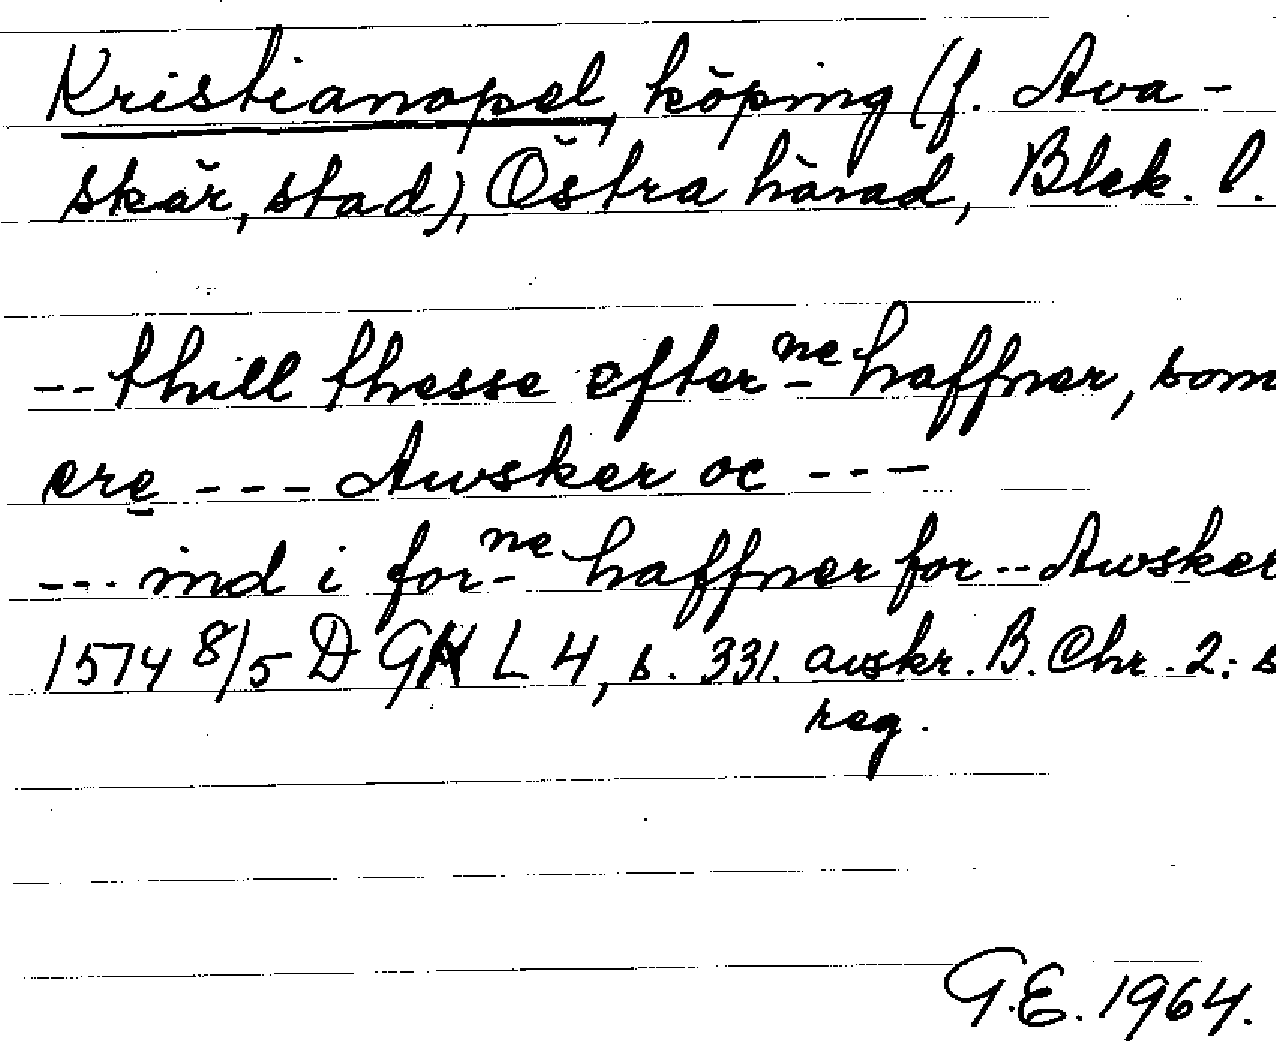 Kristianopel, köping (f. Ava-
skär, stad), Östra härad, Blek. l.
-- thill thesse efterne haffner, som
ere --- Awsker oc ---
--- ind i forne haffner for -- Awsker
1574 8/5 D GK L 4, s. 331. avskr. B. Chr. 2: s
reg.
G.E. 1964.